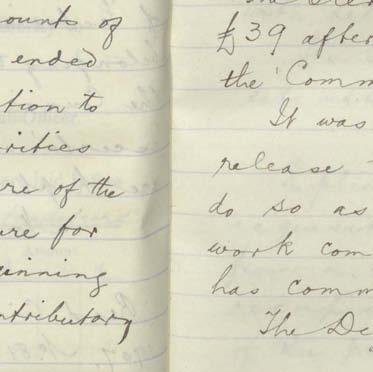 ounts of
ended
tion to
rities
re of the
ure for
inning
ntributory
£39 after
the Comm
It was
release
do so as
work com
has comm
The De